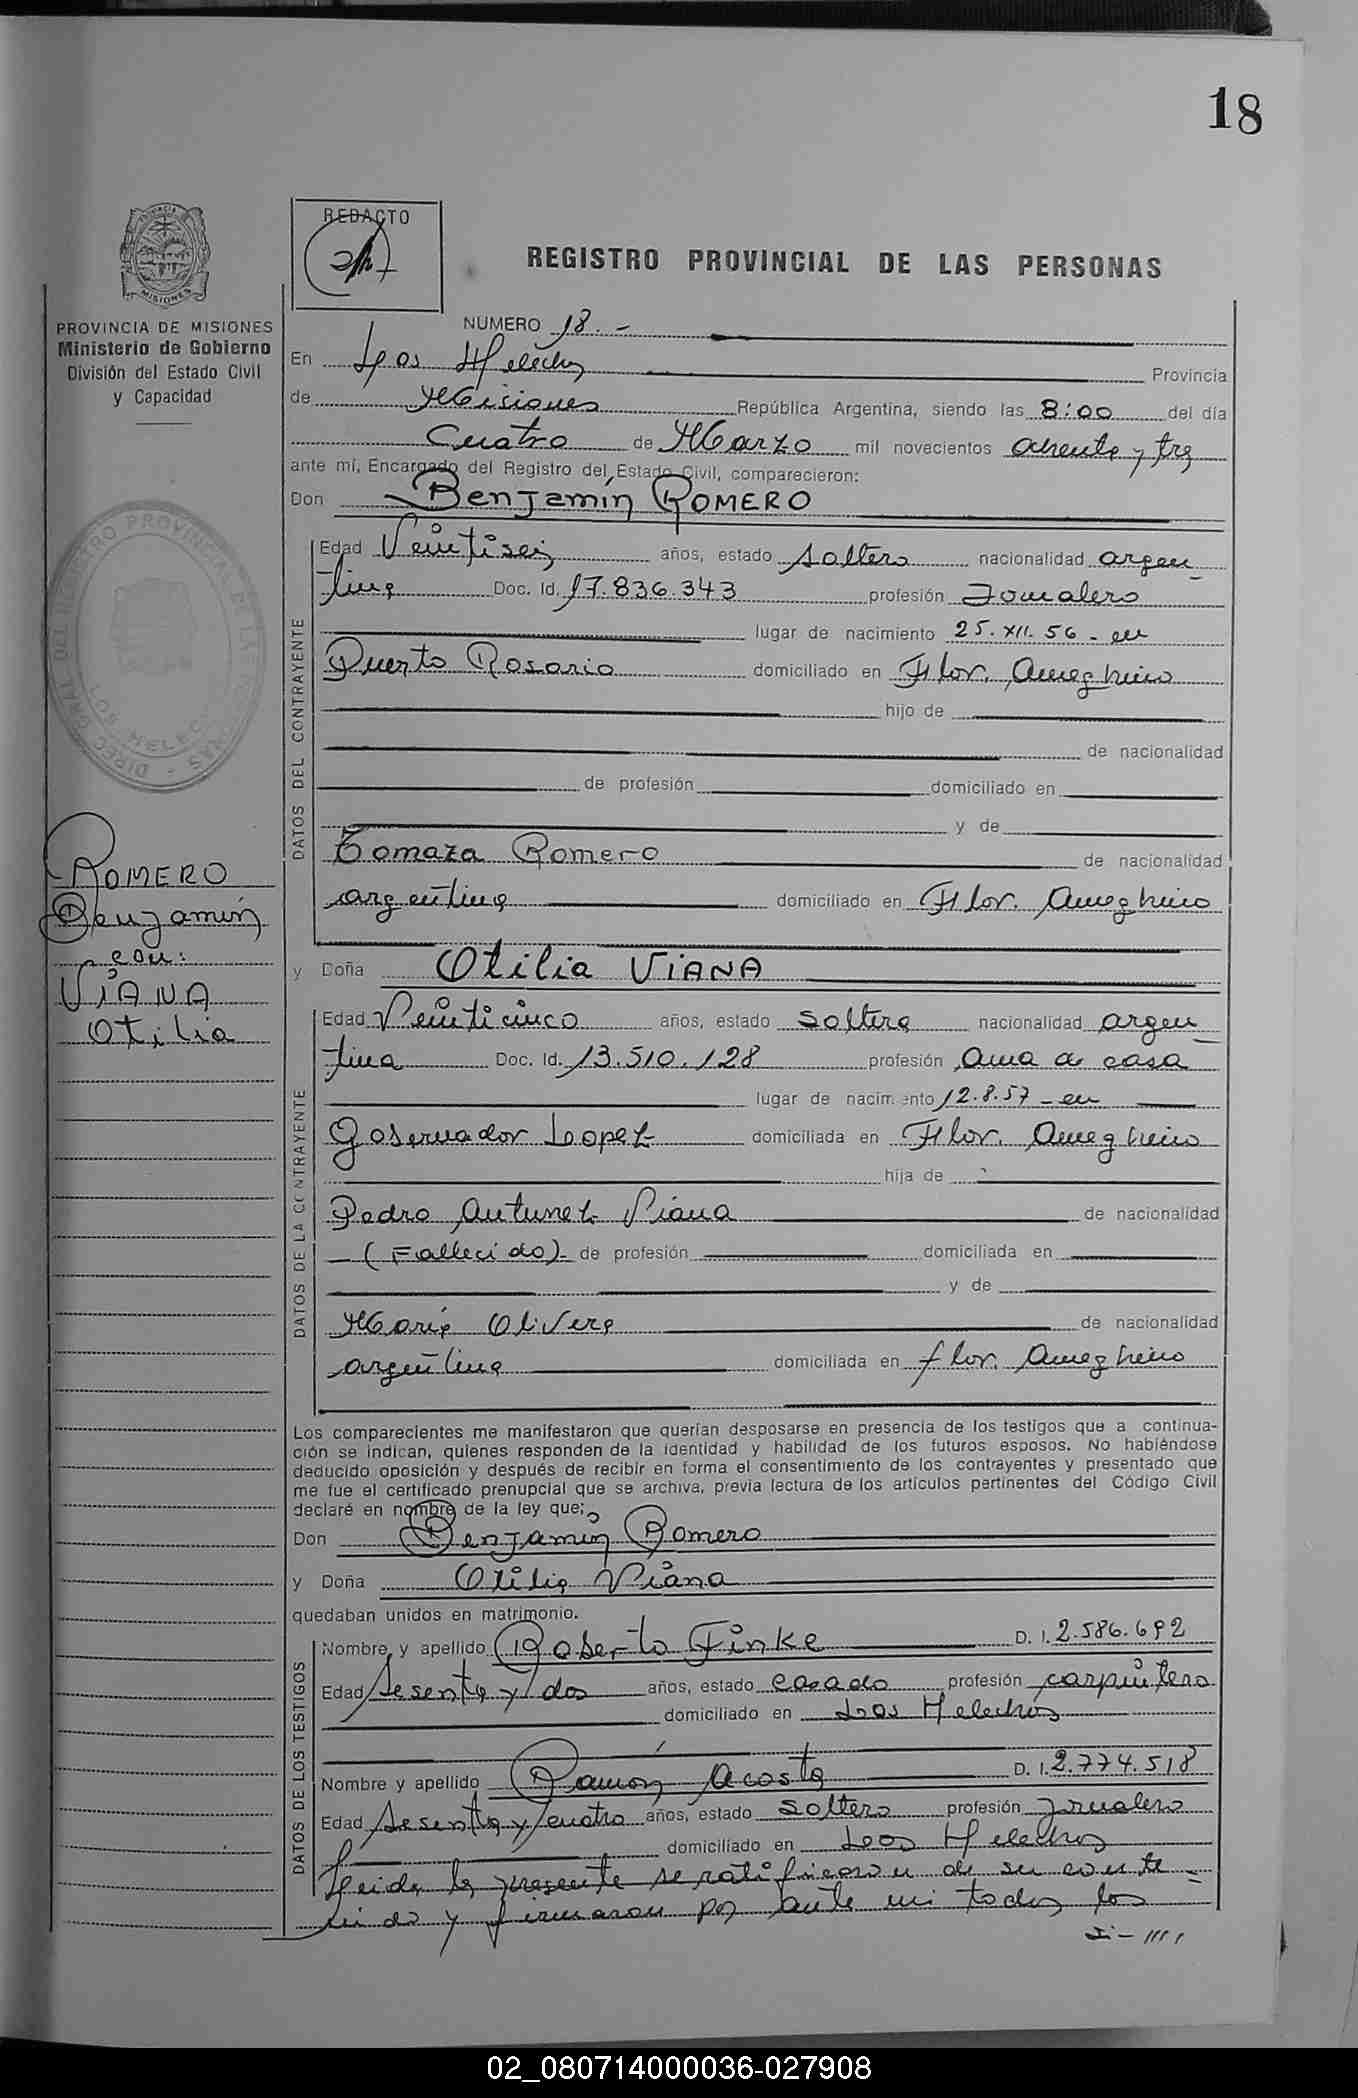 18
REDACTO
REGISTRO PROVINCIAL DE LAS PERSONAS
MISIONES
PROVINCIA DE MISIONES
Ministerio de Gobierno
División del Estado Civil
y Capacidad
NUMERO 18.-
En Los Helechos Provincia
de Misiones República Argentina, siendo las 8:00 del día
Cuatro de Marzo mil novecientos ochenta y tres
ante mí, Encargado del Registro del Estado Civil, comparecieron:
Don Benjamín ROMERO
DATOS DEL CONTRAYENTE
Edad Veintiseis años, estado soltero nacionalidad argen
tina Doc. Id. 17.836.343 profesión Jornalero
lugar de nacimiento 25.XII.56 - en
Puerto Rosario domiciliado en Flor. Ameghino
hijo de
de nacionalidad
de profesión domiciliado en
y de
Tomaza Romero de nacionalidad
argentina domiciliado en Flor. Ameghino
ROMERO
Benjamín
con:
VIANA
Otilia
y Doña Otilia VIANA
DATOS DE LA CONTRAYENTE
Edad Veinticinco años, estado soltera nacionalidad argen
tina Doc. Id. 13.510.128 profesión ama de casa
lugar de nacimiento 12.8.57 - en
Gobernador Lopez domiciliada en Flor. Ameghino
hija de
Pedro Antunez Viana de nacionalidad
- (Fallecido)- de profesión domiciliada en
y de
María Olivera de nacionalidad
argentina domiciliada en flor. Ameghino
Los comparecientes me manifestaron que querían desposarse en presencia de los testigos que a continua-
ción se indican, quienes responden de la identidad y habilidad de los futuros esposos. No habiéndose
deducido oposición y después de recibir en forma el consentimiento de los contrayentes y presentado que
me fue el certificado prenupcial que se archiva, previa lectura de los artículos pertinentes del Código Civil
declaré en nombre de la ley que:
Don Benjamín Romero
y Doña Otilia Viana
quedaban unidos en matrimonio.
DATOS DE LOS TESTIGOS
Nombre y apellido Roberto Finke D. I. 2.586.692
Edad Sesenta y dos años, estado casado profesión carpintero
domiciliado en Los Helechos
Nombre y apellido Ramón Acosta D. I. 2.774.518
Edad Sesenta y cuatro años, estado soltero profesión jornalero
domiciliado en Los Helechos
Leida la presente se ratificaron de su conte-
nido y firmaron por ante mi todos los
02_080714000036-027908